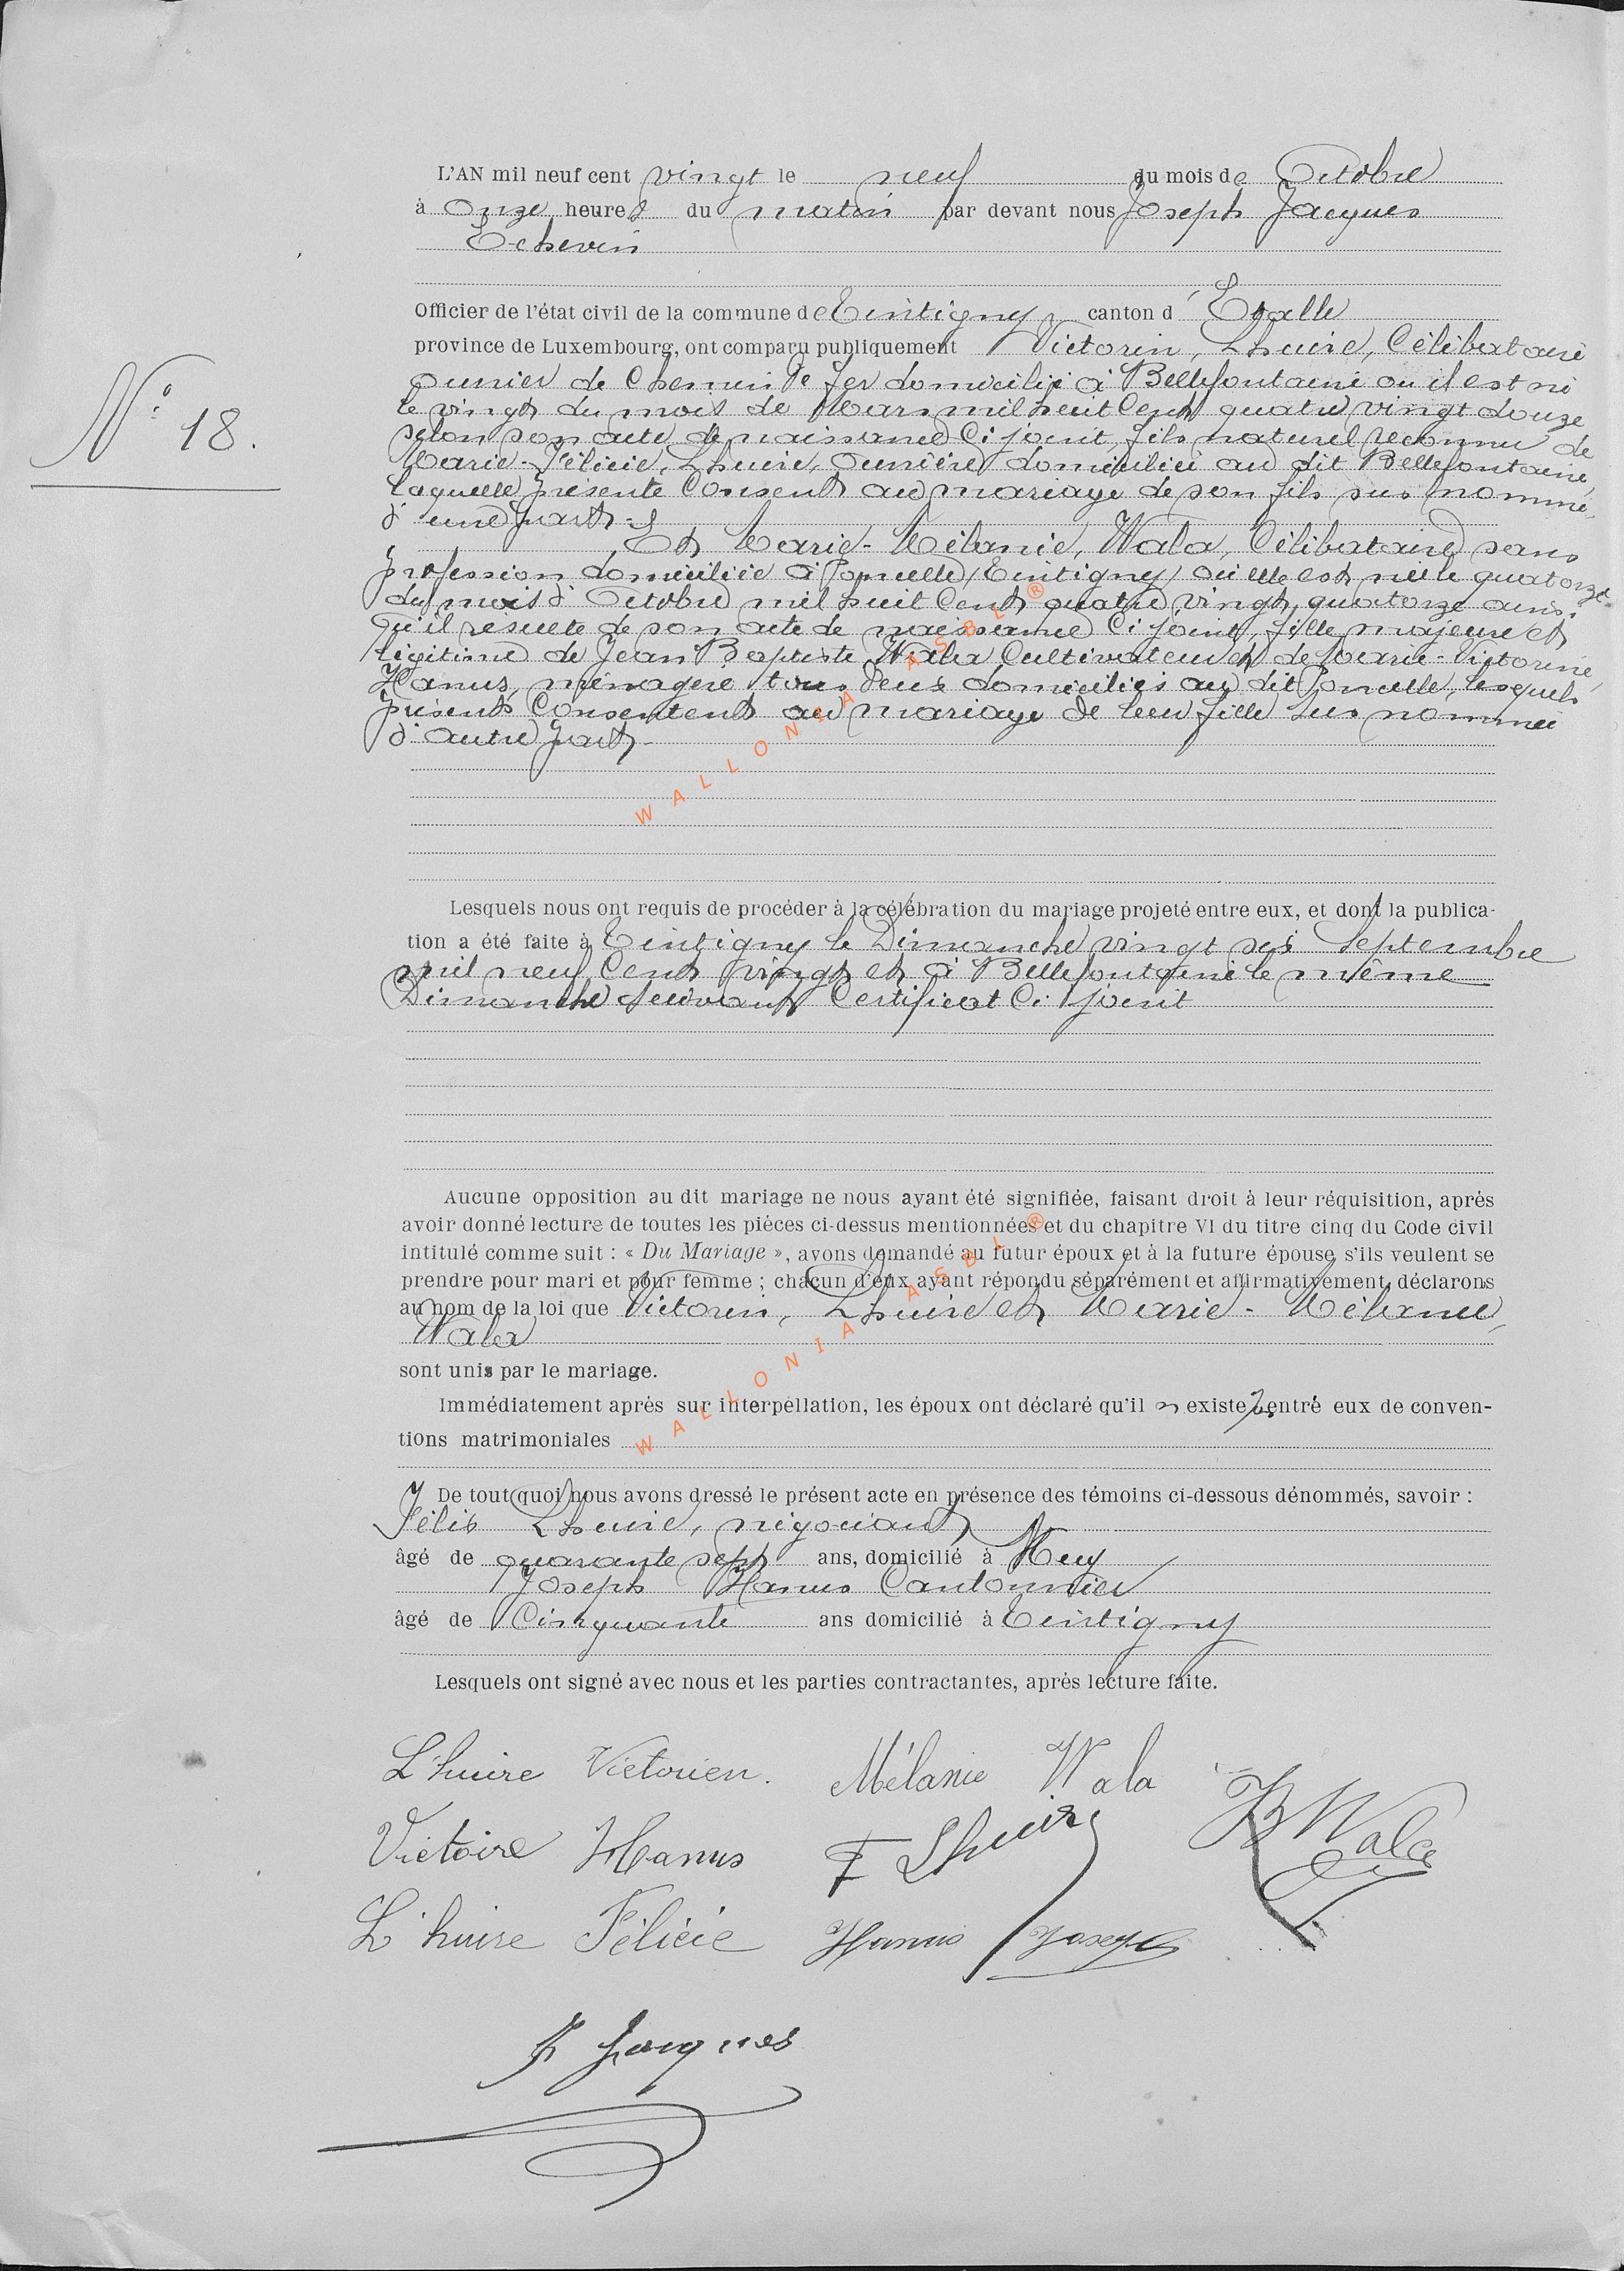 L'AN mil neuf cent vingt le neuf du mois de Octobre
à onze heures du matin par devant nous Joseph Jacques
Echevin
Officier de l'état civil de la commune de Tintigny, canton d'Etalle
province de Luxembourg, ont comparu publiquement Victorin, Lhuire, Célibataire
ouvrier de Chemin de fer domicilié à Bellefontaine où il est né
le vingt du mois de Mars mil huit Cent quatre vingt douze
selon son acte de naissance Ci joint, fils naturel reconnu de
Marie-Félicie, Lhuire, ouvrière domiciliée au dit Bellefontaine,
laquelle présente Consent au mariage de son fils sus nommé,
d'une part
N° 18.
Et Marie-Mélanie, Wala, Célibataire sans
profession domiciliée à Poncelle (Tintigny) où elle est née le quatorze
du mois d'Octobre mil huit Cent quatre vingt quatorze ainsi
qu'il resulte de son acte de naissance Ci joint, fille majeure et
légitime de Jean Baptiste Wala Cultivateur et de Marie-Victorine,
Hanus, ménagère tous deux domiciliés au dit Poncelle, lesquels
présents Consentent au mariage de leur fille sus nommée
d'autre part
WALLONIA ASBL ®
Lesquels nous ont requis de procéder à la célébration du mariage projeté entre eux, et dont la publica-
tion a été faite à Tintigny le Dimanche vingt six Septembre
mil neuf Cent vingt et à Bellefontaine le même
Dimanche suivant Certificat Ci joint
Aucune opposition au dit mariage ne nous ayant été signifiée, faisant droit à leur réquisition, après
avoir donné lecture de toutes les pièces ci-dessus mentionnées et du chapitre VI du titre cinq du Code civil
intitulé comme suit : « Du Mariage », avons demandé au futur époux et à la future épouse s'ils veulent se
prendre pour mari et pour femme ; chacun d'eux ayant répondu séparément et affirmativement, déclarons
au nom de la loi que Victorin, Lhuire et Marie-Mélanie,
Wala
sont unis par le mariage.
WALLONIA ASBL ®
Immédiatement après sur interpellation, les époux ont déclaré qu'il n existe pas entre eux de conven-
tions matrimoniales
De tout quoi nous avons dressé le présent acte en présence des témoins ci-dessous dénommés, savoir :
Félix Lhuire, négociant
âgé de quarante sept ans, domicilié à Huy
Joseph Hanus Cantonnier
âgé de Cinquante ans domicilié à Tintigny
Lesquels ont signé avec nous et les parties contractantes, après lecture faite.
L'huire Victorien. Mélanie Wala
JB Wala
Victoire Hanus F Lhuire
L'huire Félicie Hanus Joseph
J Jacques